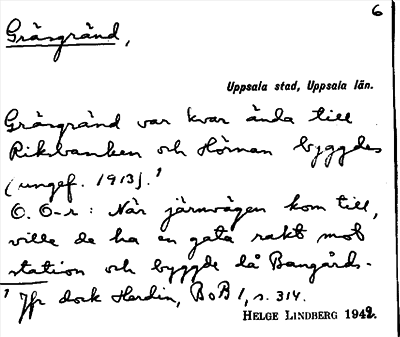 6
Gräsgränd,
Uppsala stad, Uppsala län.
Gräsgränd var kvar ända till
Riksbanken och Hörnan byggdes
(ungef. 1913).¹
O. Ö-r: När järnvägen kom till,
ville de ha en gata rakt mot
station och byggde då Bangårds-
¹ Jfr dock Herdin, BoB 1, s. 314.
HELGE LINDBERG 1942.